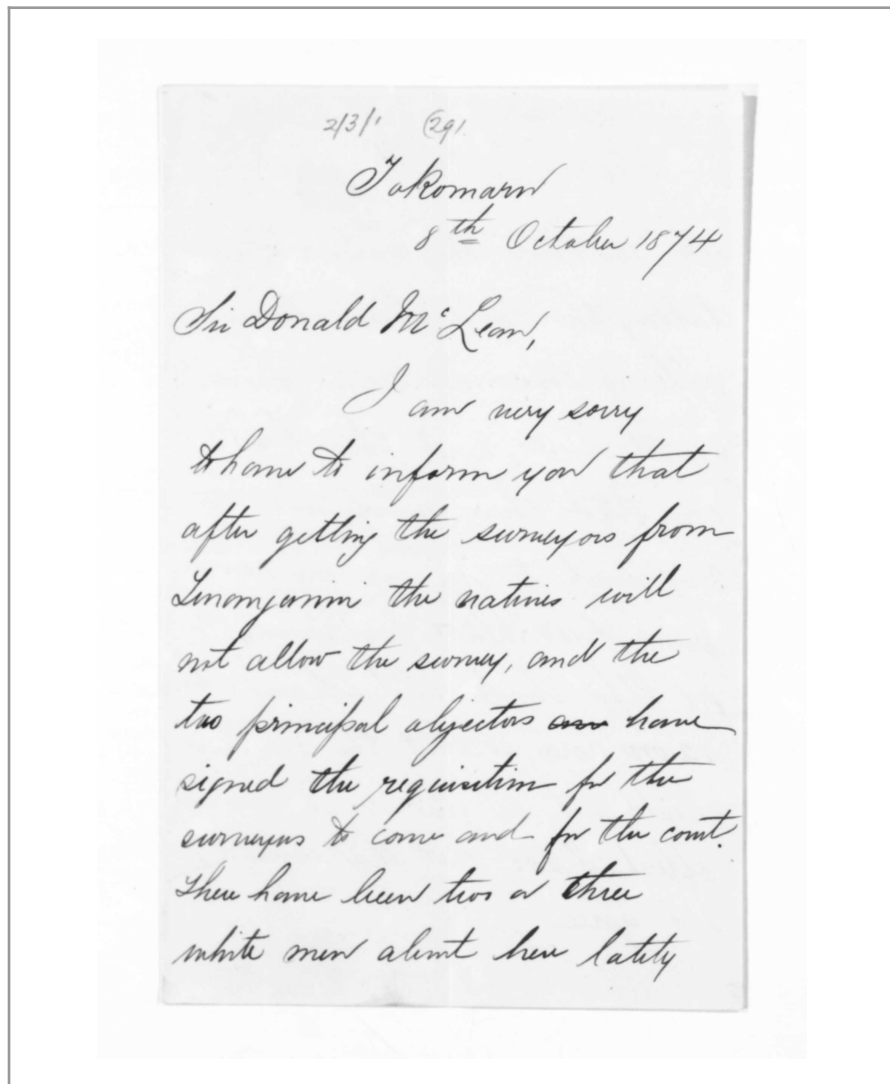 2/3/1 (291
Tokomaru
8th October 1874
Sir Donald McLean,
I am very sorry
to have to inform you that
after getting the surveyors from
the natives will
not allow the survey, and the
two principal objectors have
signed the requisition for the
surveyors to come and for the court.
There have been two or three
white men about here lately